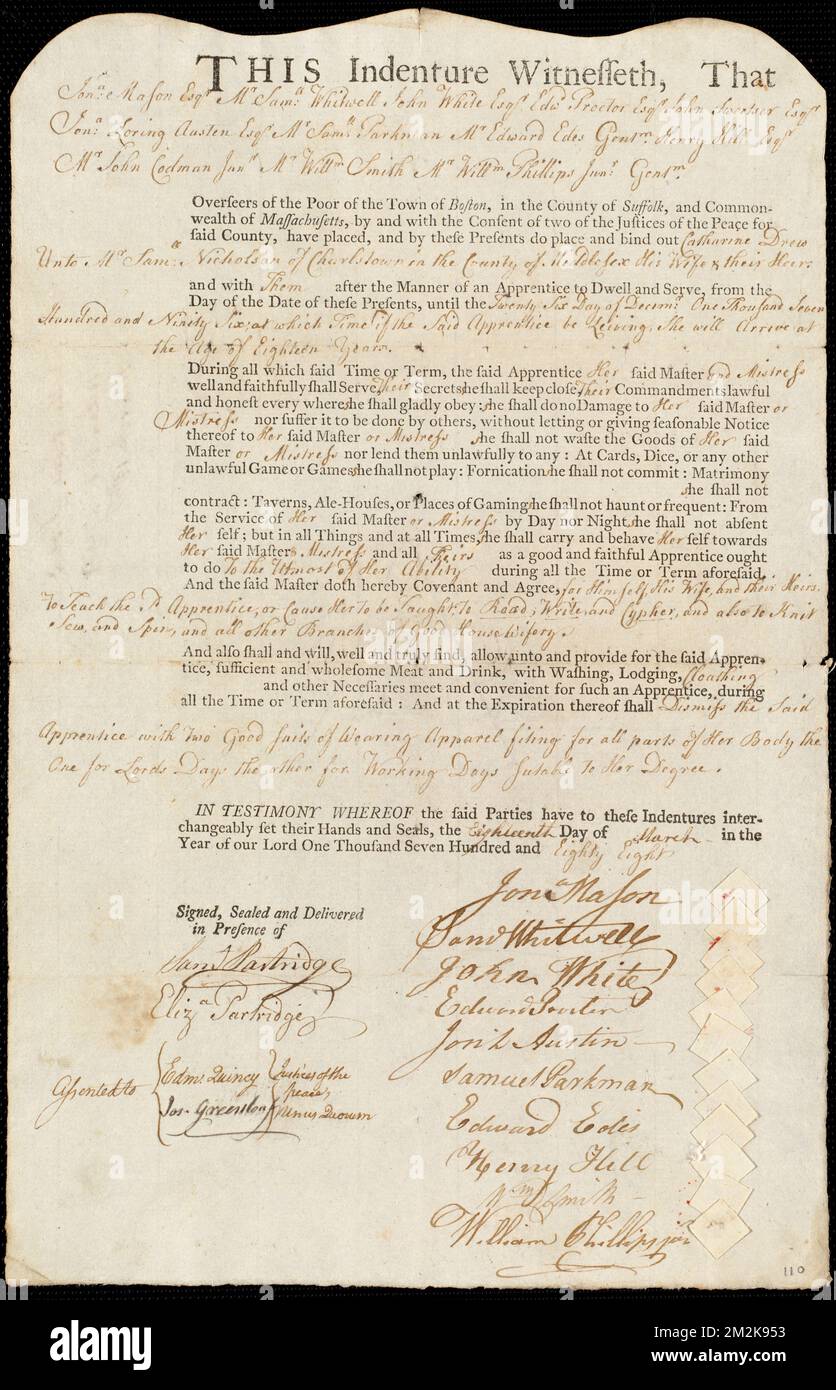 THIS Indenture Witnesseth, That
Jonª Mason Esqr Mr Samˡˡ Whitwell John White Esqr Edwd Proctor Esqr John Sweetser Esqr
Jonª Loring Austen Esqr Mr Samˡˡ Parkman Mr Edward Edes Gentᵐ Henry Hill Esqr
Mr John Codman Junr Mr Willᵐ Smith Mr Willᵐ Phillips Junr Gentᵐ.
Overſeers of the Poor of the Town of Boſton, in the County of Suffolk, and Common-
wealth of Maſſachuſetts, by and with the Conſent of two of the Juſtices of the Peace for
ſaid County, have placed, and by theſe Preſents do place and bind out Catharine Drew
Unto Mr Samˡˡ Nicholson of Charlstown in the County of Meddlesex His Wife & their Heirs
and with Them after the Manner of an Apprentice to Dwell and Serve, from the
Day of the Date of theſe Preſents, until the Twenty Six Day of Decemr One Thousand Seven
Hundred and Ninity Six; at which Time if the Said Apprentice be Leiving, She will Arrive at
the Age of Eighteen Years.
During all which ſaid Time or Term, the ſaid Apprentice Her ſaid Maſter and Mistress
well and faithfully ſhall Serve, Their Secrets she ſhall keep cloſe, Their Commandments lawful
and honeſt every where she ſhall gladly obey: she ſhall do no Damage to Her ſaid Maſter or
Mistress nor ſuffer it to be done by others, without letting or giving ſeaſonable Notice
thereof to Her ſaid Maſter or Mistress she ſhall not waſte the Goods of Her ſaid
Maſter or Mistress nor lend them unlawfully to any: At Cards, Dice, or any other
unlawful Game or Games she ſhall not play: Fornication she ſhall not commit: Matrimony
she ſhall not
contract: Taverns, Ale-Houſes, or Places of Gaming she ſhall not haunt or frequent: From
the Service of Her ſaid Maſter or Mistress by Day nor Night she ſhall not abſent
Her ſelf; but in all Things and at all Times, she ſhall carry and behave Her ſelf towards
Her ſaid Maſter & Mistress and all Theirs as a good and faithful Apprentice ought
to do To the Uttmost of Her Ability during all the Time or Term aforeſaid.
And the ſaid Maſter doth hereby Covenant and Agree, for Himself, His Wife, and their Heirs.
To Teach the sd Apprentice, or Cause Her to be Taught to Read, Write, and Cypher, and also to Knit
Sew, and Spin, and all other Branches of Good House Wifery.
And alſo ſhall and will, well and truly find, allow, unto and provide for the ſaid Appren-
tice, ſufficient and wholeſome Meat and Drink, with Waſhing, Lodging, Cloathing
and other Neceſſaries meet and convenient for ſuch an Apprentice, during
all the Time or Term aforeſaid: And at the Expiration thereof ſhall Dismiss the Said
Apprentice with two Good Suits of Wearing Apparel fiting for all parts of Her Body the
One for Lords Days the other for Working Days Sutable to Her Degree.
IN TESTIMONY WHEREOF the ſaid Parties have to theſe Indentures inter-
changeably ſet their Hands and Seals, the Eighteenth Day of March in the
Year of our Lord One Thouſand Seven Hundred and Eighty Eight
Signed, Sealed and Delivered
in Preſence of
Saml Partridge
Elizª Partridge
Assented to
Edm. Quincy Justices of the
Jos. Greenleaf peace, unus Quorum
Jonª Mason
Saml Whitwell
John White
Edward Proctor
Jon L Austin
Samuel Parkman
Edward Edes
Henry Hill
Wm Smith
William Phillips jun
110
alamy
Image ID: 2M2K953
www.alamy.com